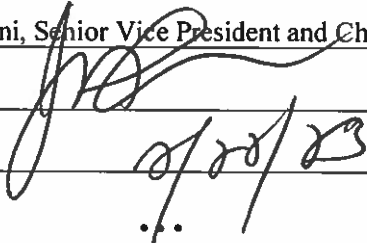 ni, Senior Vice President and Ch
2/22/23